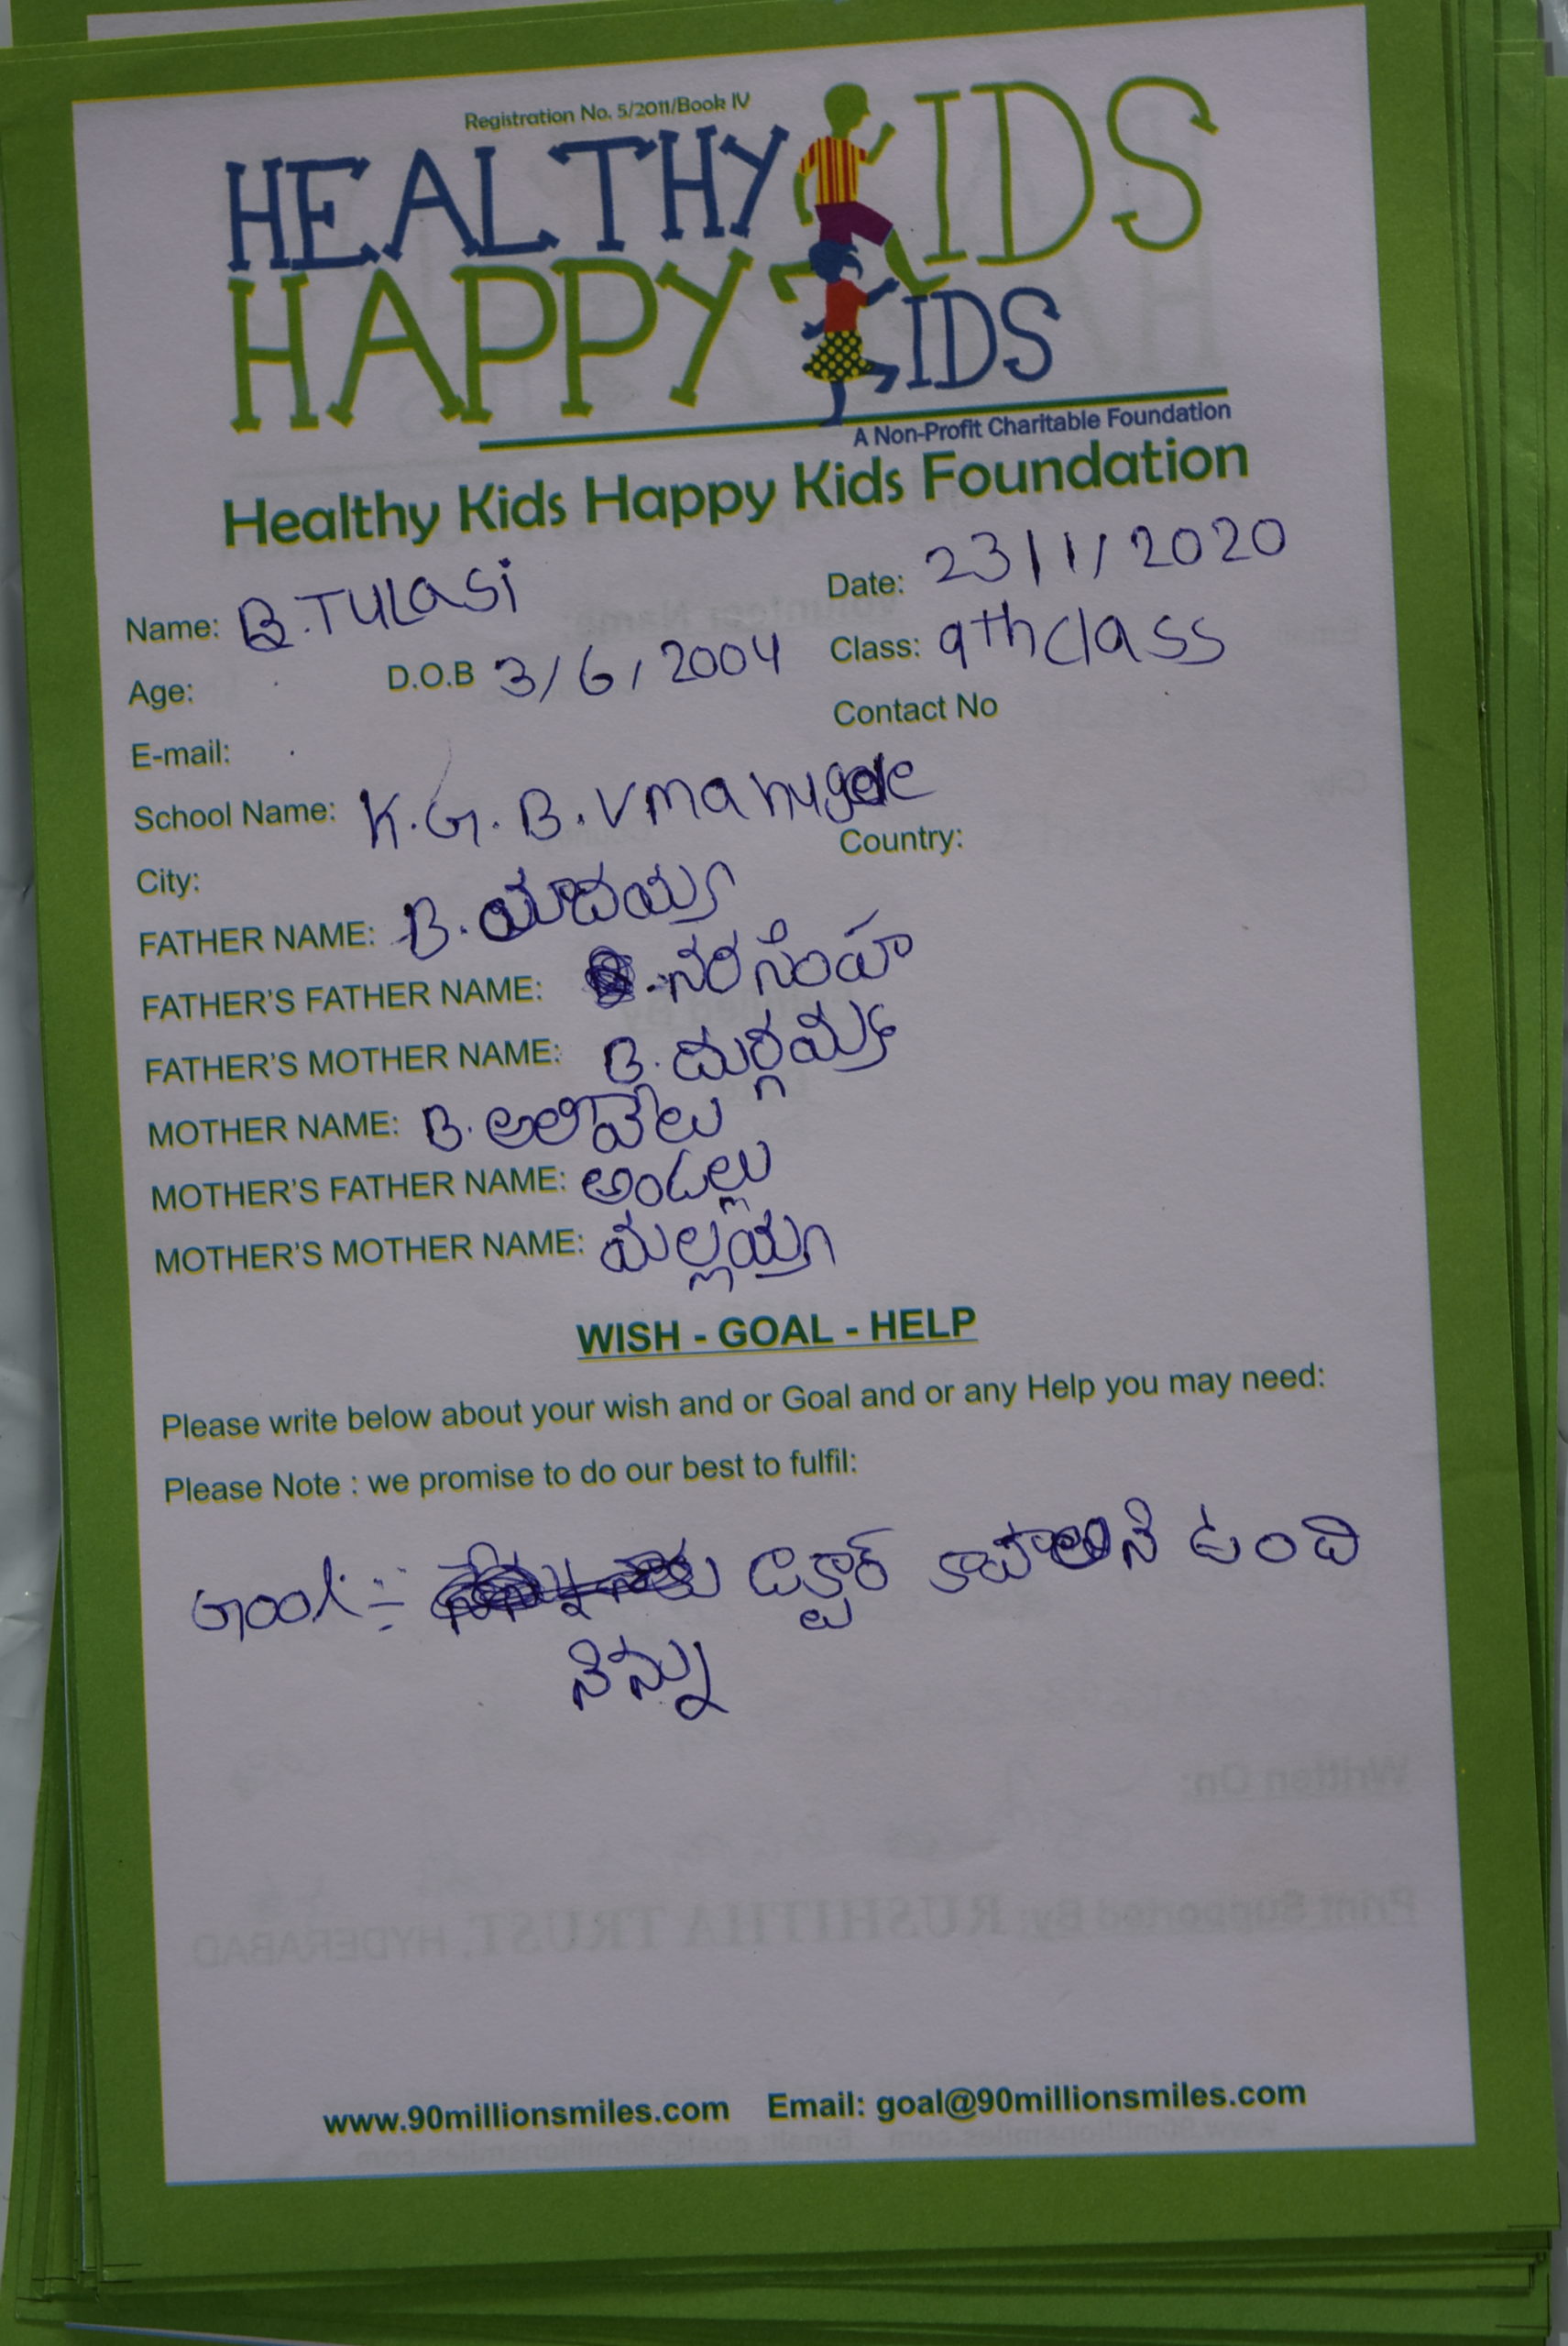 Registration No. 5/2011/Book IV
HEALTHY KIDS
HAPPY KIDS
A Non-Profit Charitable Foundation
Healthy Kids Happy Kids Foundation
Name: B.TULaSi Date: 23/1/2020
Age: D.O.B 3/6/2004 Class: 9th class
E-mail: Contact No
School Name: K.G.B.V
City: Country:
FATHER NAME: B. యాదయ్య
FATHER'S FATHER NAME: నరసింహ
FATHER'S MOTHER NAME: B. దుర్గమ్మ
MOTHER NAME: B. అలివేలు
MOTHER'S FATHER NAME: అండల్లు
MOTHER'S MOTHER NAME: మల్లయ్య
WISH - GOAL - HELP
Please write below about your wish and or Goal and or any Help you may need:
Please Note : we promise to do our best to fulfil:
Goal:- డాక్టార్ కావాలని ఉంది
నెన్ను
www.90millionsmiles.com Email: goal@90millionsmiles.com